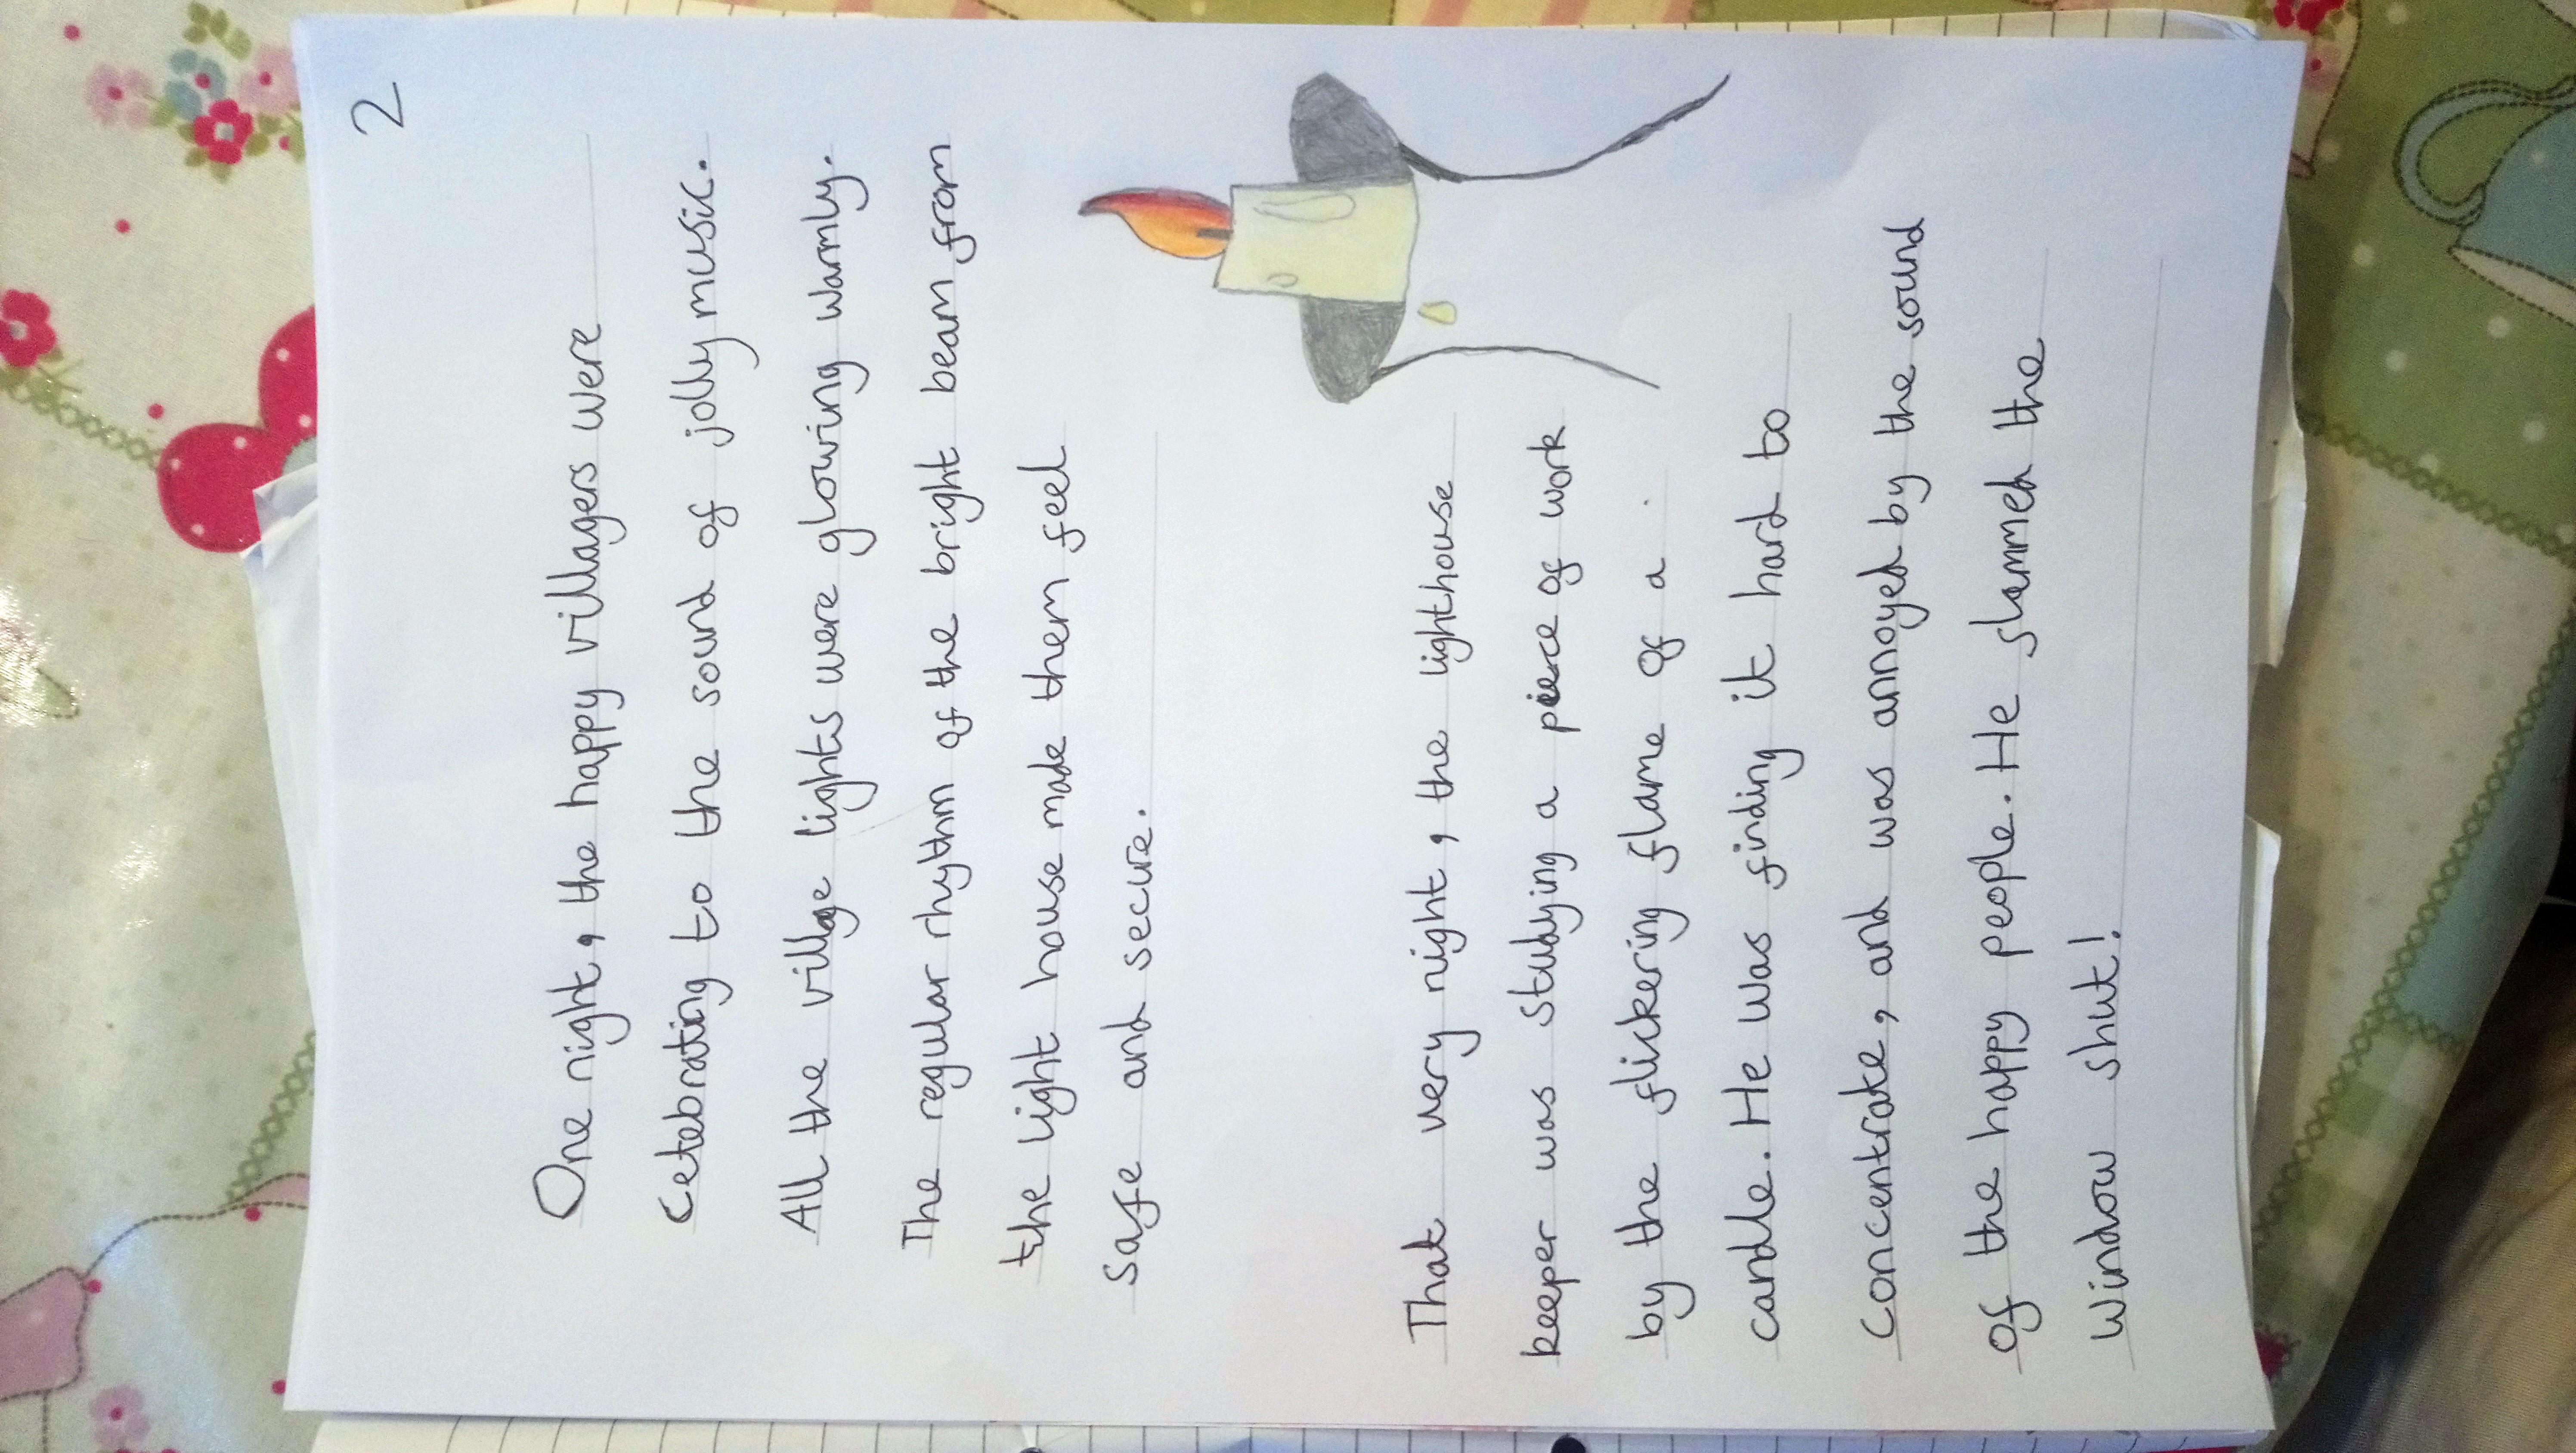 2
One night, the happy villagers were
celebrating to the sound of jolly music.
All the village lights were glowing warmly.
The regular rhythm of the bright beam from
the light house made them feel
safe and secure.
That very night, the lighthouse
keeper was studying a piece of work
by the flickering flame of a
candle. He was finding it hard to
concentrate, and was annoyed by the sound
of the happy people. He slammed the
window shut!